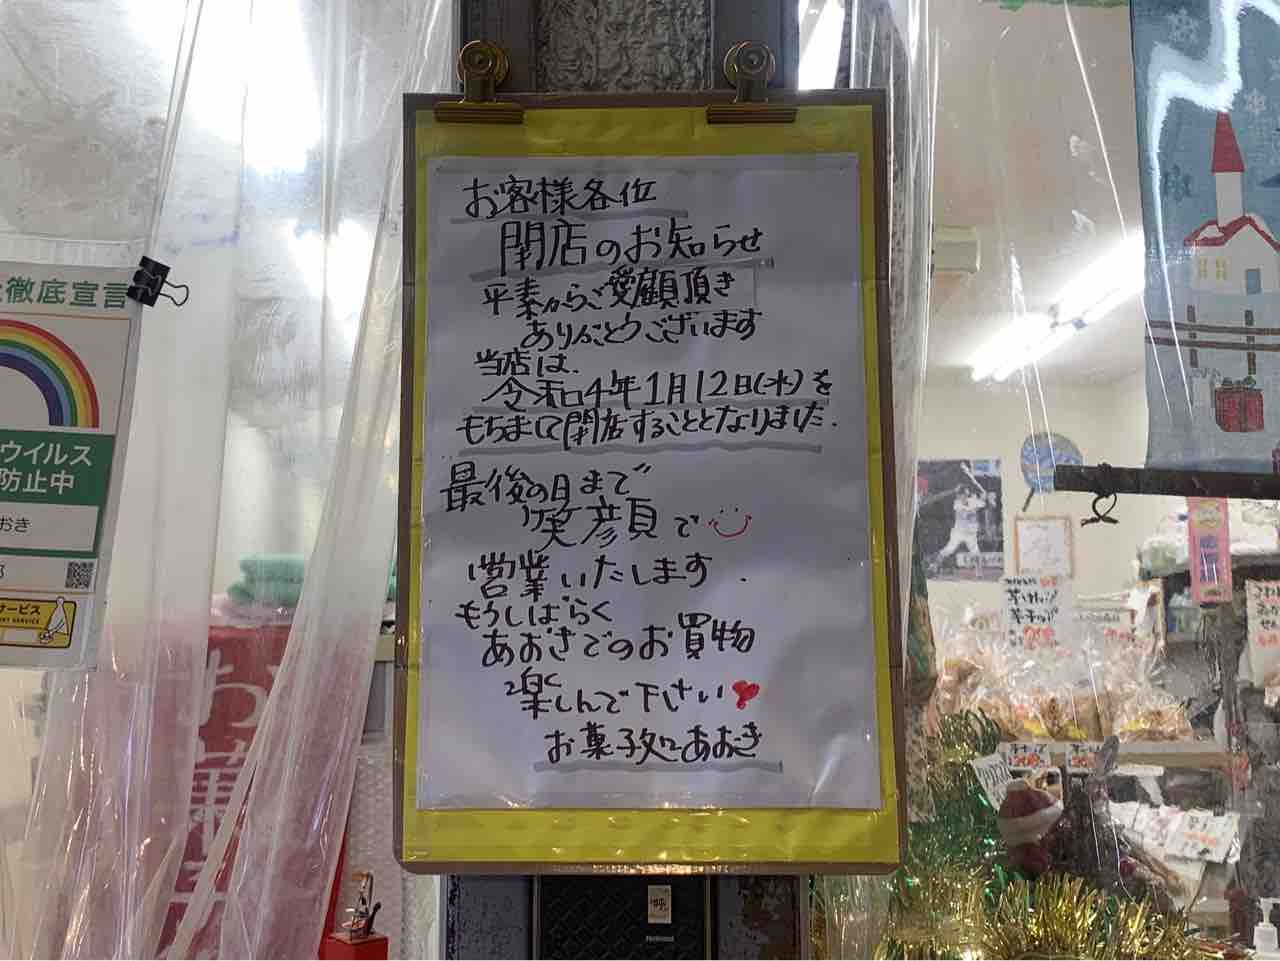 お客様各位
閉店のお知らせ
平素からご愛顧頂き
ありがとうございます
当店は、
令和4年1月12日(水)を
もちまして閉店することとなりました.
最後の日まで
笑顔で
営業いたします.
もうしばらく
あおきでのお買物
楽しんで下さい
お菓子処あおき
徹底宣言
ウイルス
防止中
おき
サービス